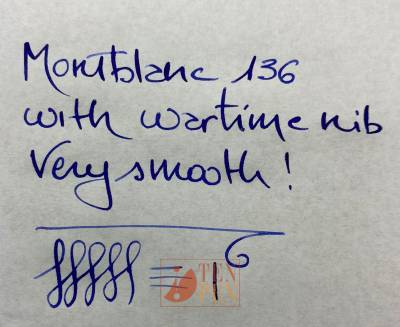 Montblanc 136
with wartime nib
Very smooth!
TEN
PEN